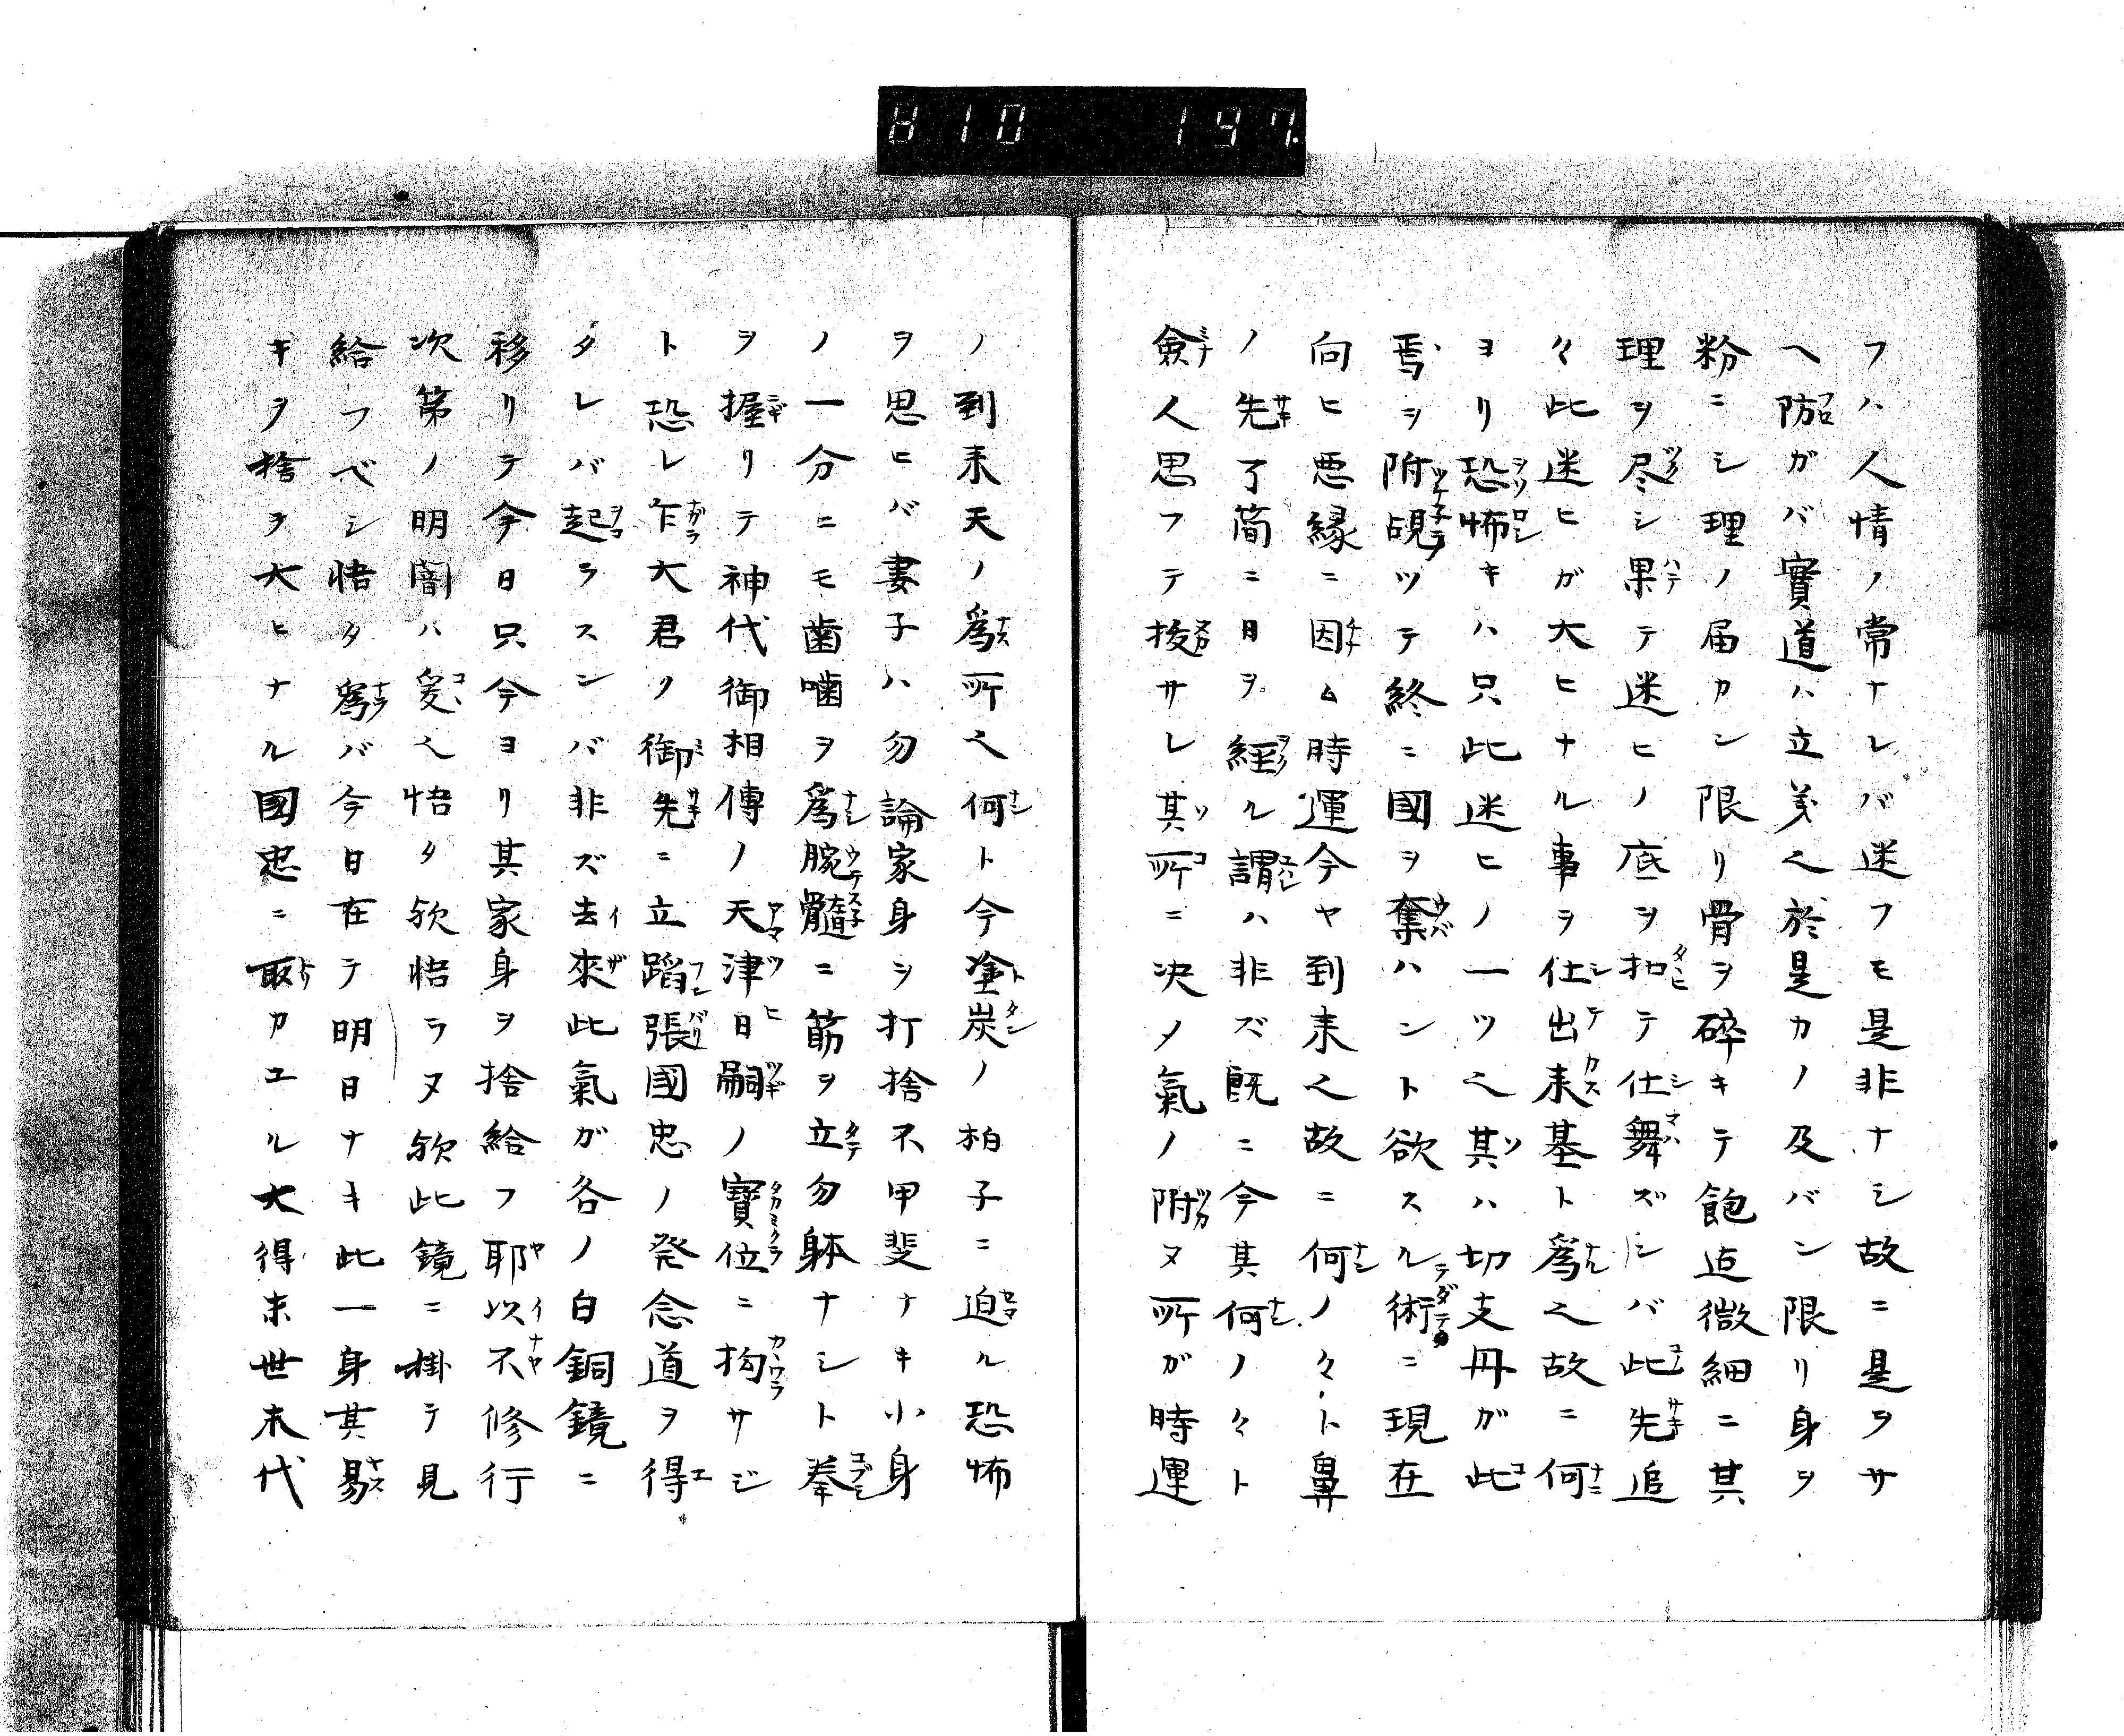 810 197
フハ人情ノ常ナレバ迷フモ是非ナシ故ニ是ヲサ
ヘ防ガバ實道ハ立義〆於是カノ及バン限リ身ヲ
粉ニシ理ノ届カン限リ骨ヲ碎キテ飽迠微細ニ其
理ヲ尽シ果テ迷ヒノ底ヲ扣テ仕舞ズンバ此先追
々此迷ヒガ大ヒナル事ヲ仕出来基ト爲〆故ニ何
ヨリ恐怖キハ只此迷ヒノ一ツ〆其ハ切支丹ガ此
焉ヲ附覘ツテ終ニ國ヲ奪ハント欲スル術ニ現在
向ヒ悪縁ニ因ム時運今ヤ到来〆故ニ何ノ々ト鼻
ノ先了簡ニ日ヲ經ル謂ハ非ズ既ニ今其何ノ々ト
僉人思フテ拔サレ其所ニ决ノ氣ノ附ヌ所ガ時運
ノ到来天ノ爲所〆何ト今塗炭ノ柏子ニ迫ル恐怖
ヲ思ヒバ妻子ハ勿論家身ヲ打捨不甲斐ナキ小身
ノ一分ニモ歯噛ヲ爲腕髓ニ筋ヲ立勿躰ナシト拳
ヲ握リテ神代御相傳ノ天津日嗣ノ寳位ニ拘サジ
ト恐レ乍大君ノ御先ニ立蹈張國忠ノ発念道ヲ得
タレバ起ラスンバ非ズ去來此氣ガ各ノ白銅鏡ニ
移リテ今日只今ヨリ其家身ヲ捨給フ耶以不修行
次第ノ明闇ハ爰〆悟タ欤悟ラヌ欤此鏡ニ掛テ見
給フベシ悟タ爲バ今日在テ明日ナキ此一身其易
キヲ捨ヲ大ヒナル國忠ニ取カユル大得末世末代